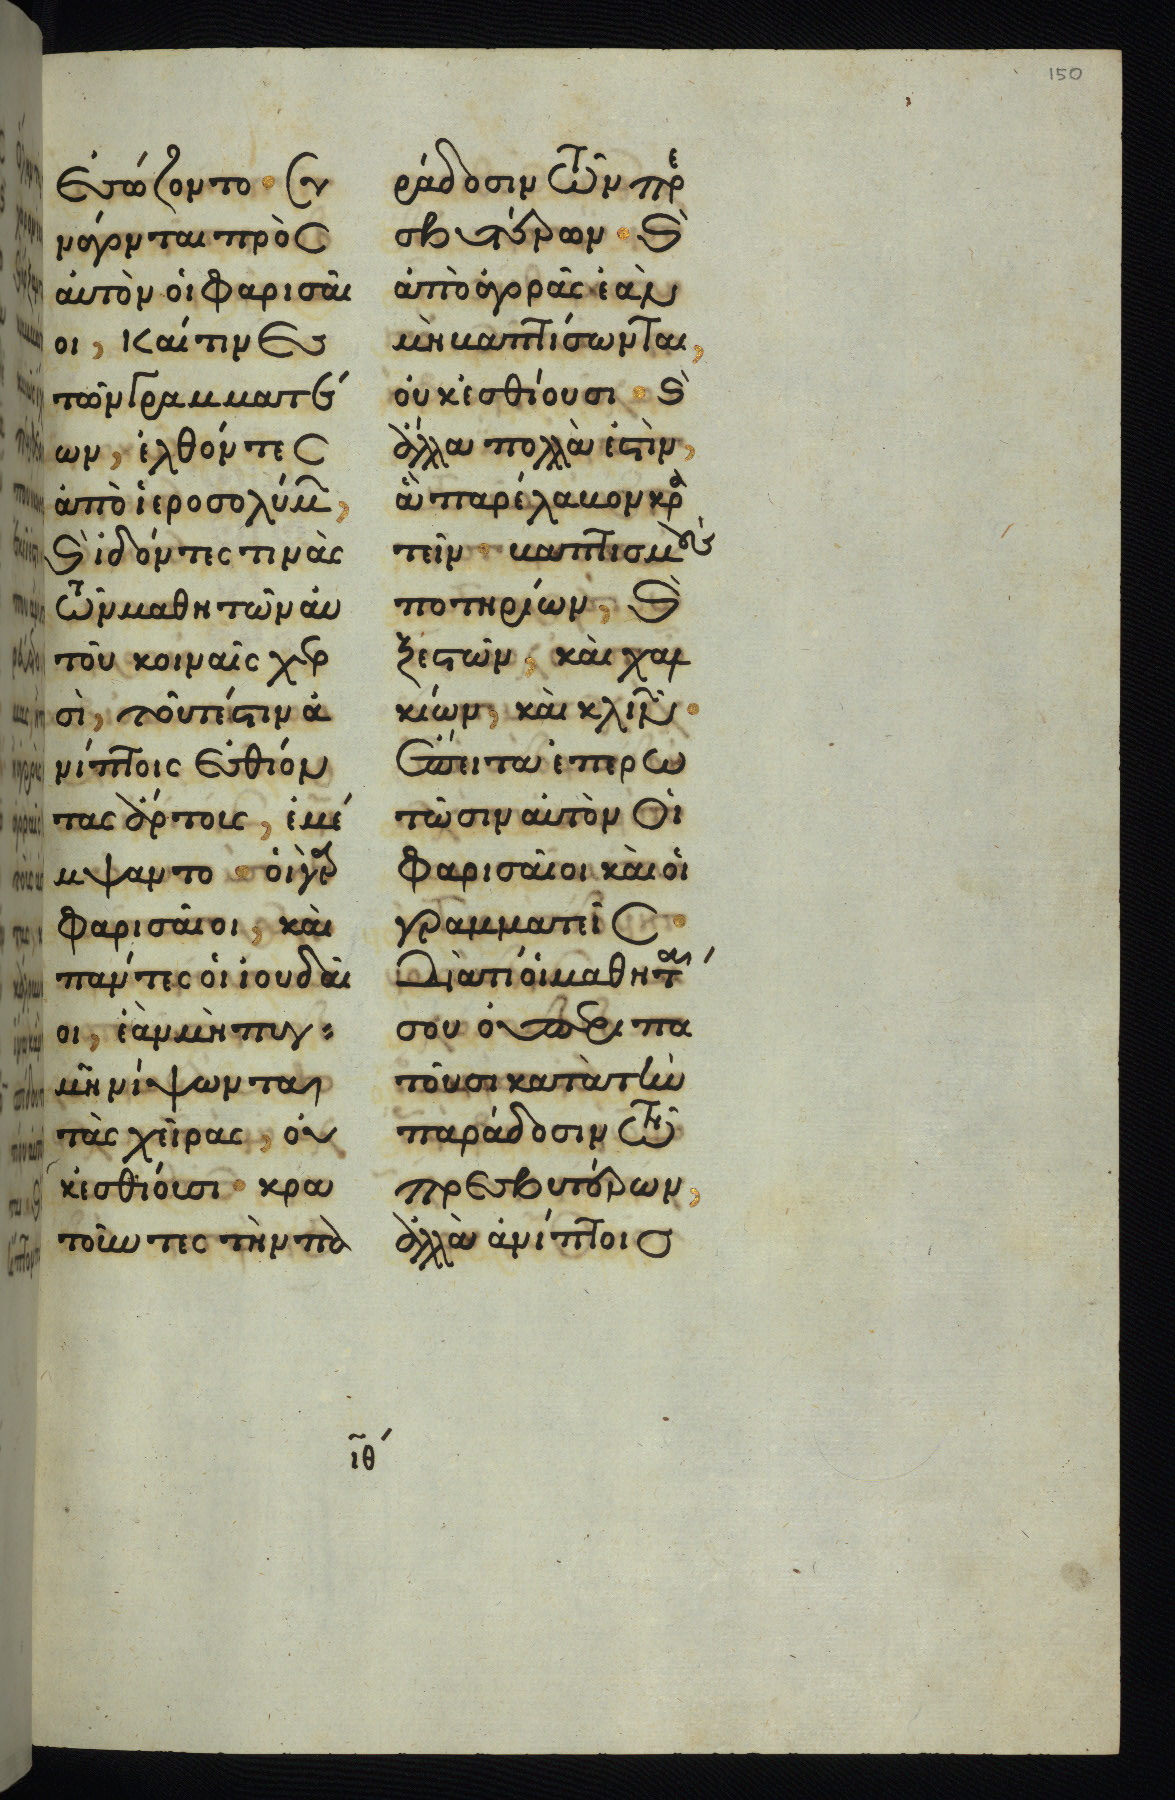 150
ἐσώζοντο · Συ
νάγονται πρὸς
αὐτὸν οἱ φαρισαῖ
οι, Καί τινες
τῶν γραμματέ
ων, ἐλθόντες
ἀπὸ ἱεροσολύμ̅,
ϗ̀ ἰδόντες τινὰς
τῶν μαθητῶν αὐ
τοῦ κοιναῖς χερ
σὶ, τοῦτέστιν ἀ
νίπτοις ἐσθίον
τας ἄρτοις, ἐμέ
μψαντο · οἱ γὰρ
φαρισαῖοι, καὶ
πάντες οἱ ἰουδαῖ
οι, ἐὰν μὴ πυγ
μῆ νίψωνται
τὰς χεῖρας, οὐ
κ ἐσθίουσι · κρα
τοῦντες τὴν πα
ράδοσιν τῶν πρε
σβυτέρων · ϗ̀
ἀπὸ ἀγορᾶς ἐὰν
μὴ βαπτίσωνται,
οὐκ ἐσθίουσι · ϗ̀
ἄλλα πολλὰ ἐστὶν,
ἃ παρέλαβον κρα
τεῖν · βαπτισμοὺς
ποτηρίων, ϗ̀
ξεστῶν, καὶ χαλ
κίων, καὶ κλινῶν ·
Ἔπειτα ἐπερω
τῶσιν αὐτὸν οἱ
φαρισαῖοι καὶ οἱ
γραμματεῖς ·
Διατί οἱ μαθηταί
σου οὐ περιπα
τοῦσι κατὰ τὴν
παράδοσιν τῶν
πρεσβυτέρων,
ἀλλὰ ἀνίπτοις
ιθ´